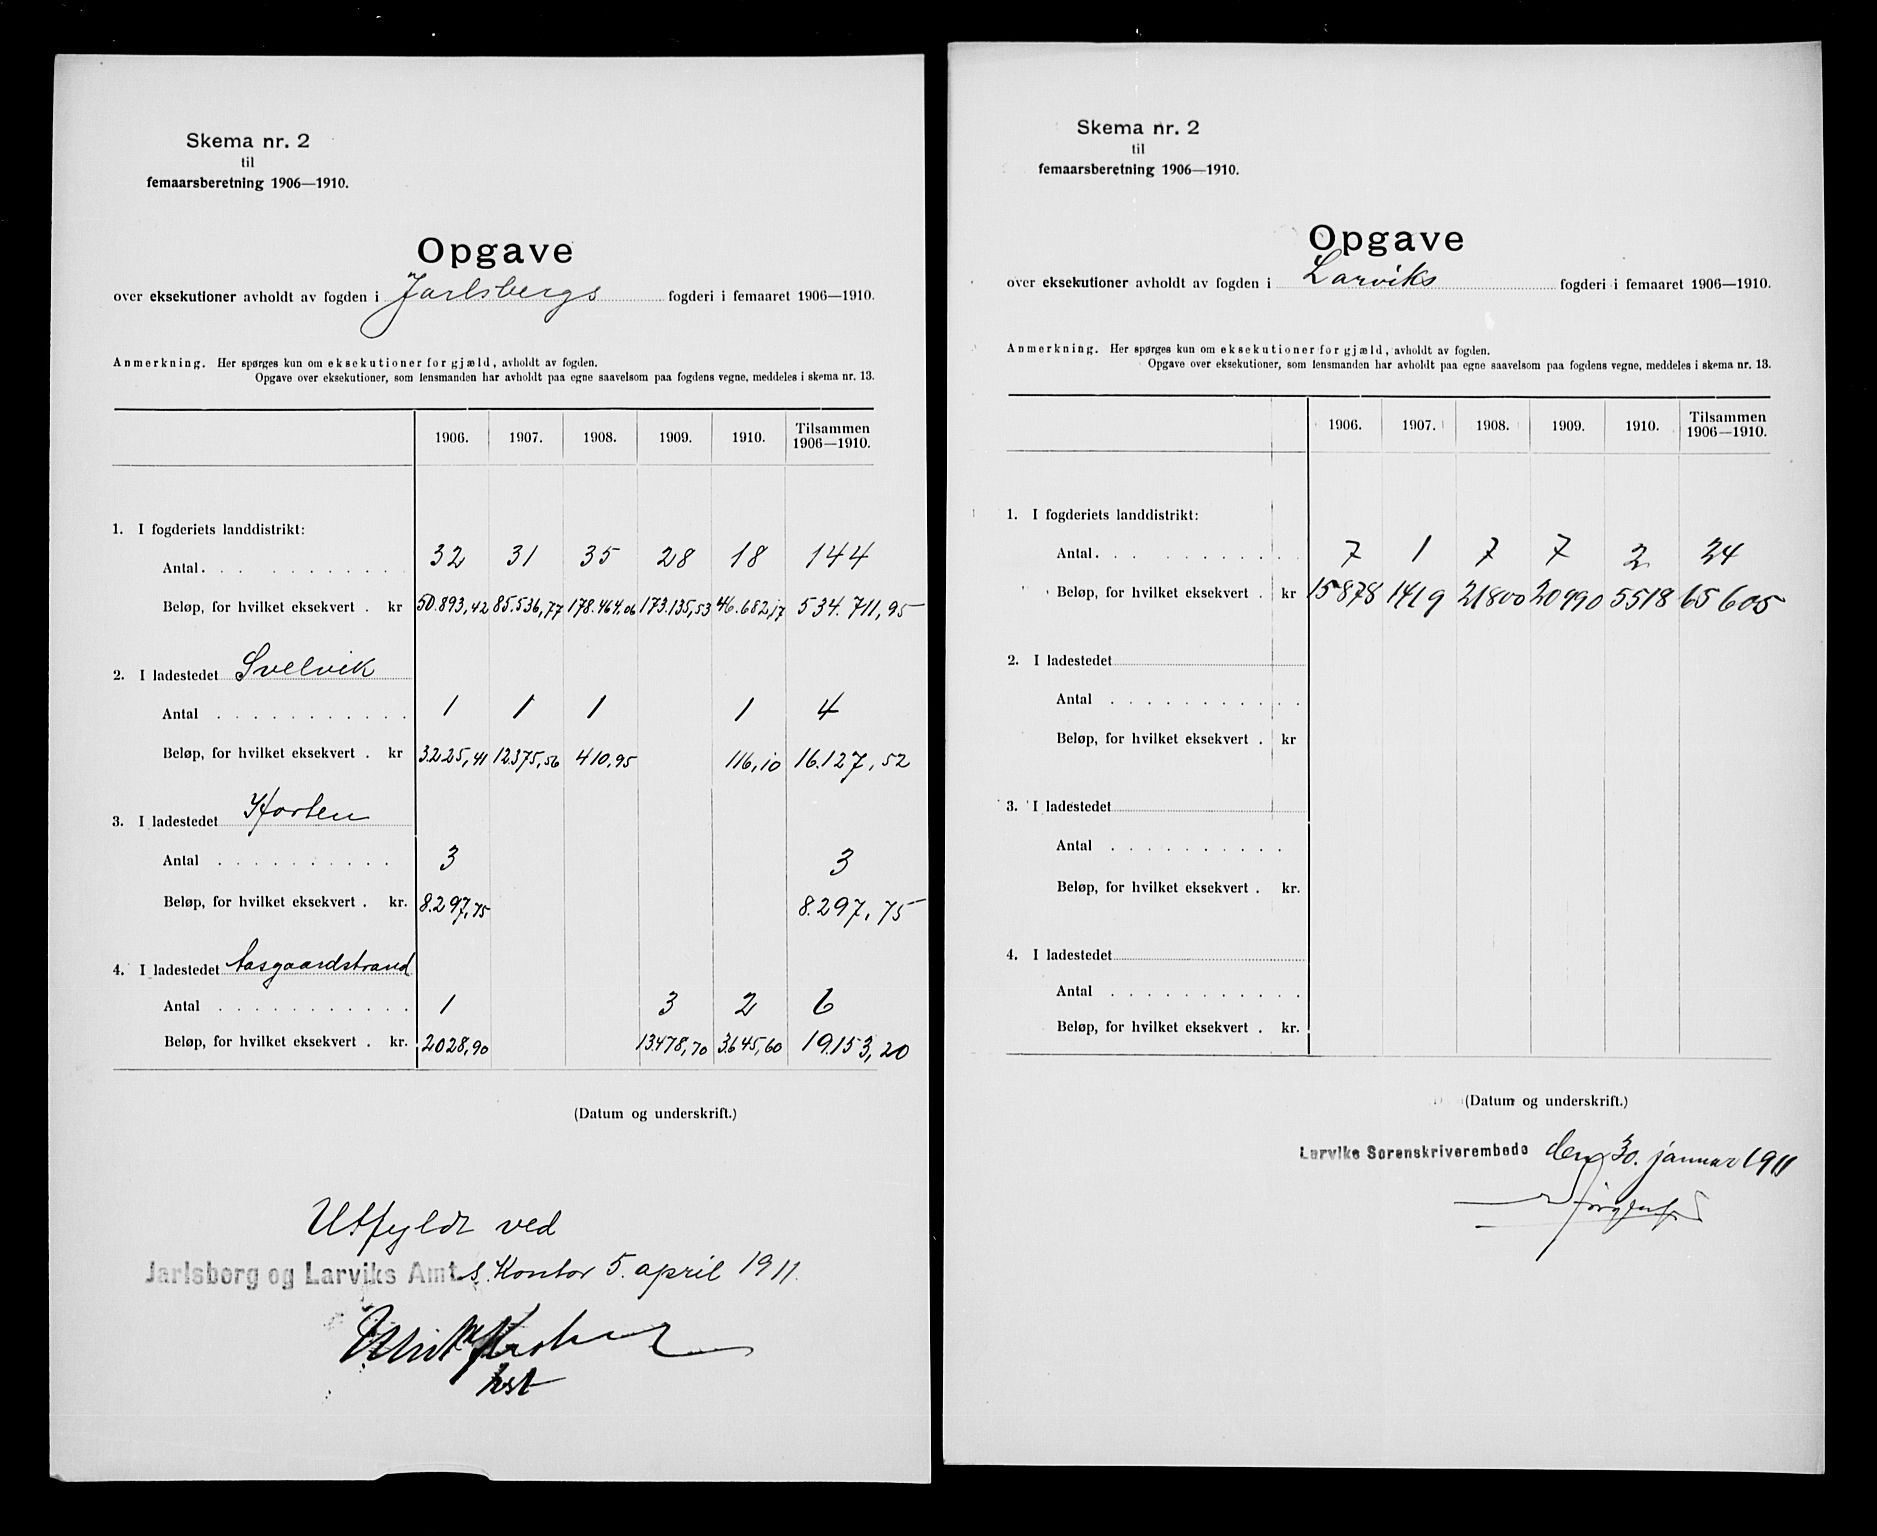 Skema nr. 2
til
femaarsberetning 1906—1910.
Opgave
over eksekutioner avholdt av fogden i Jarlsbergs fogderi i femaaret 1906—1910.
Anmerkning. Her spørges kun om eksekutioner for gjæld, avholdt av fogden.
Opgave over eksekutioner, som lensmanden har avholdt paa egne saavelsom paa fogdens vegne, meddeles i skema nr. 13.
1906. 1907. 1908. 1909. 1910. Tilsammen 1906—1910.
1. I fogderiets landdistrikt:
Antal 32 31 35 28 18 144
Beløp, for hvilket eksekvert . kr 50.893,42 85.536,77 178.464.06 173.135,53 46.682,17 534.711,95
2. I ladestedet Svelvik
Antal 1 1 1 1 4
Beløp, for hvilket eksekvert . kr 3.225,41 12.375,56 410,95 116,10 16.127,52
3. I ladestedet Horten
Antal 3 3
Beløp, for hvilket eksekvert . kr. 8.297,75 8.297,75
4. I ladestedet Aasgaardstrand
Antal 1 3 2 6
Beløp, for hvilket eksekvert . kr. 2028,90 13.478,70 3.645,60 19.153,20
(Datum og underskrift.)
Utfyldt ved
Jarlsberg og Larviks Amts Kontor 5. april 1911.
Skema nr. 2
til
femaarsberetning 1906—1910.
Opgave
over eksekutioner avholdt av fogden i Larviks fogderi i femaaret 1906—1910.
Anmerkning. Her spørges kun om eksekutioner for gjæld, avholdt av fogden.
Opgave over eksekutioner, som lensmanden har avholdt paa egne saavelsom paa fogdens vegne, meddeles i skema nr. 13.
1906. 1907. 1908. 1909. 1910. Tilsammen 1906—1910.
1. I fogderiets landdistrikt:
Antal 7 1 7 7 2 24
Beløp, for hvilket eksekvert . kr 15878 1419 21800 20990 5518 65605
2. I ladestedet
Antal
Beløp, for hvilket eksekvert . kr
3. I ladestedet
Antal
Beløp, for hvilket eksekvert . kr.
4. I ladestedet
Antal
Beløp, for hvilket eksekvert . kr.
(Datum og underskrift.)
Larviks Sorenskriverembede den 30. januar 1911